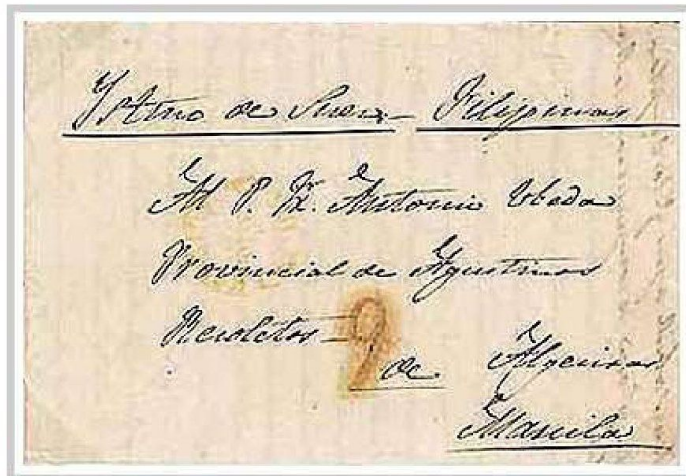 Ystmo de Suez - Filipinas
Al P. Fr. Antonio Ubeda
Provincial de Agustinos
Recoletos -
9
de Algeciras
Manila